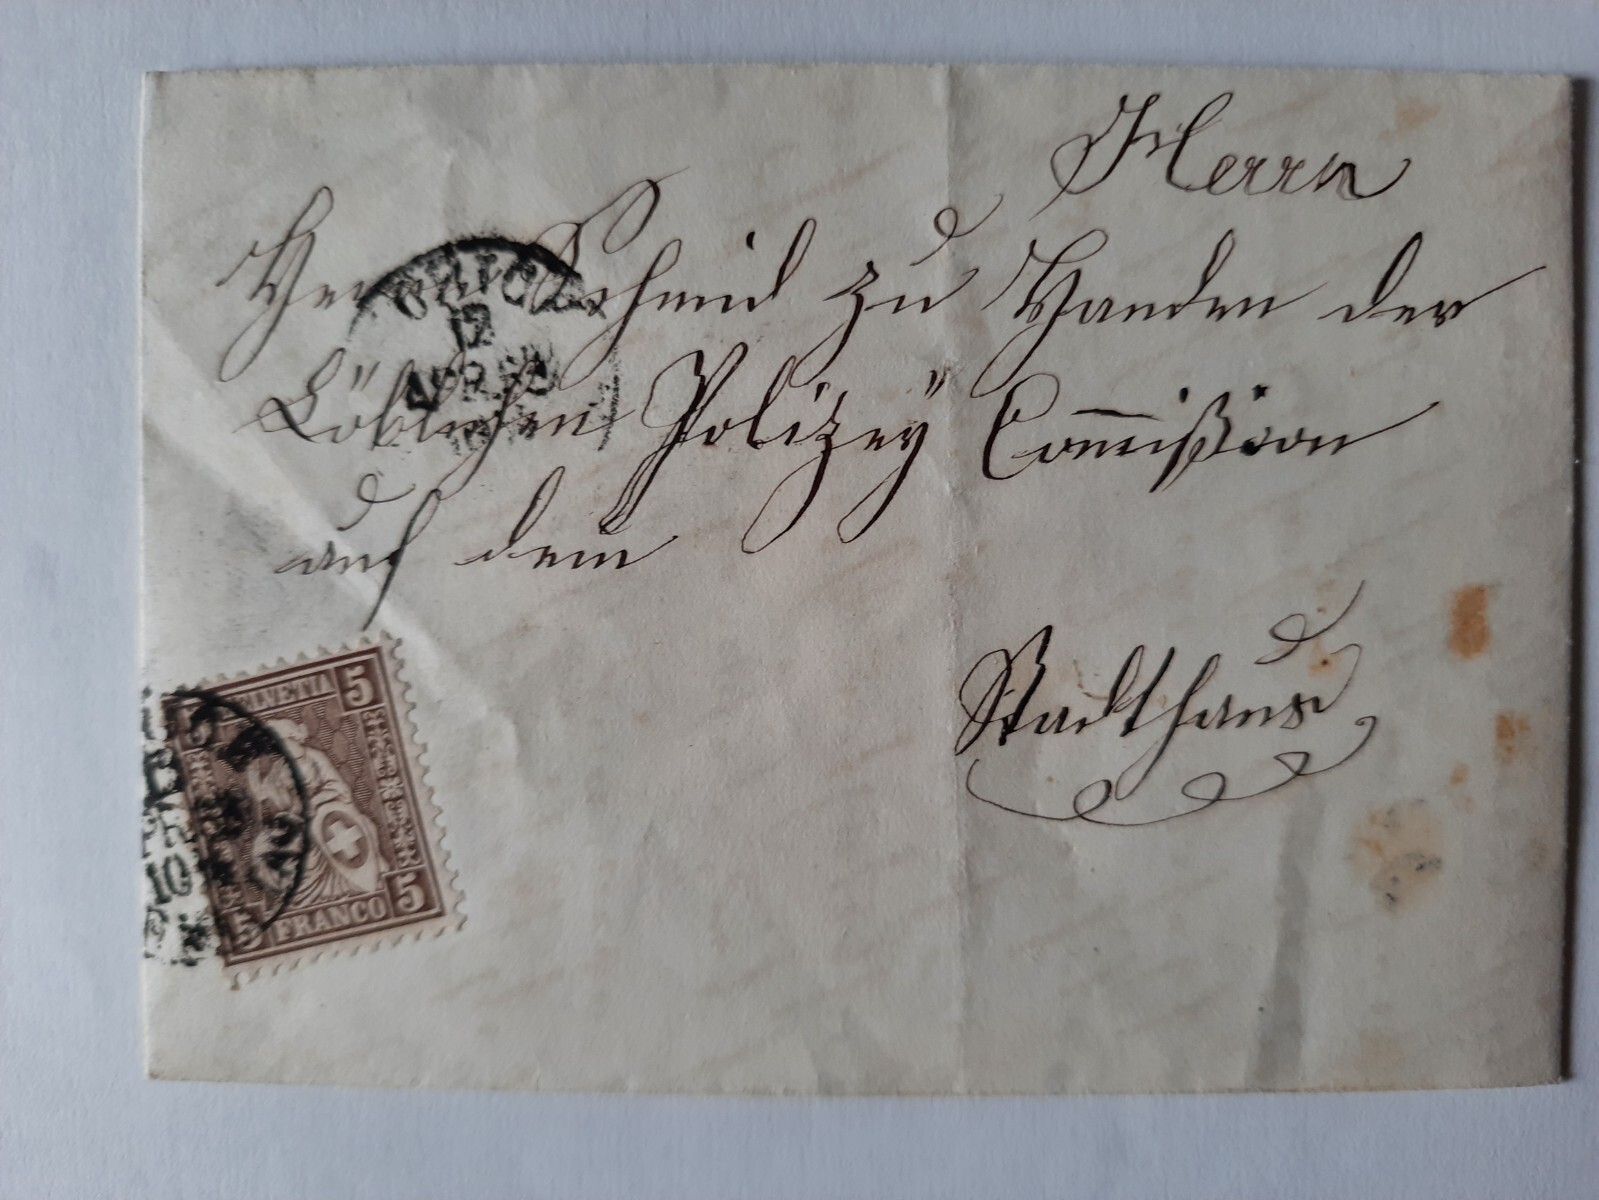 Herrn
Herrn Schmid zu Handen der
Löblichen Polizey Com̅ißion
auf dem
Stadthause
ZÜRICH
12
APR
HELVETIA 5
5 FRANCO 5